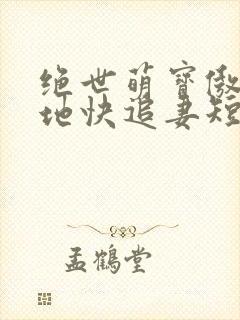 绝世萌寶傲
地快追妻短
孟鶴堂